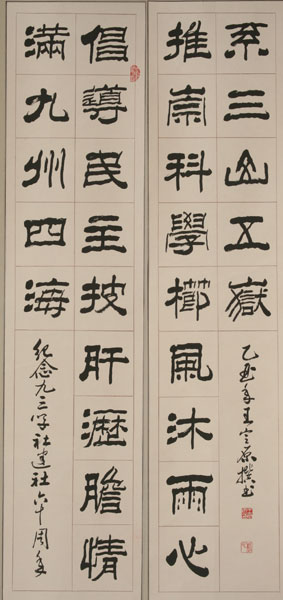 倡導民主披肝瀝膽情
滿九州四海
紀念九三学社建社六十周年
推崇科學櫛風沐雨心
系三山五嶽
乙酉年王撰书